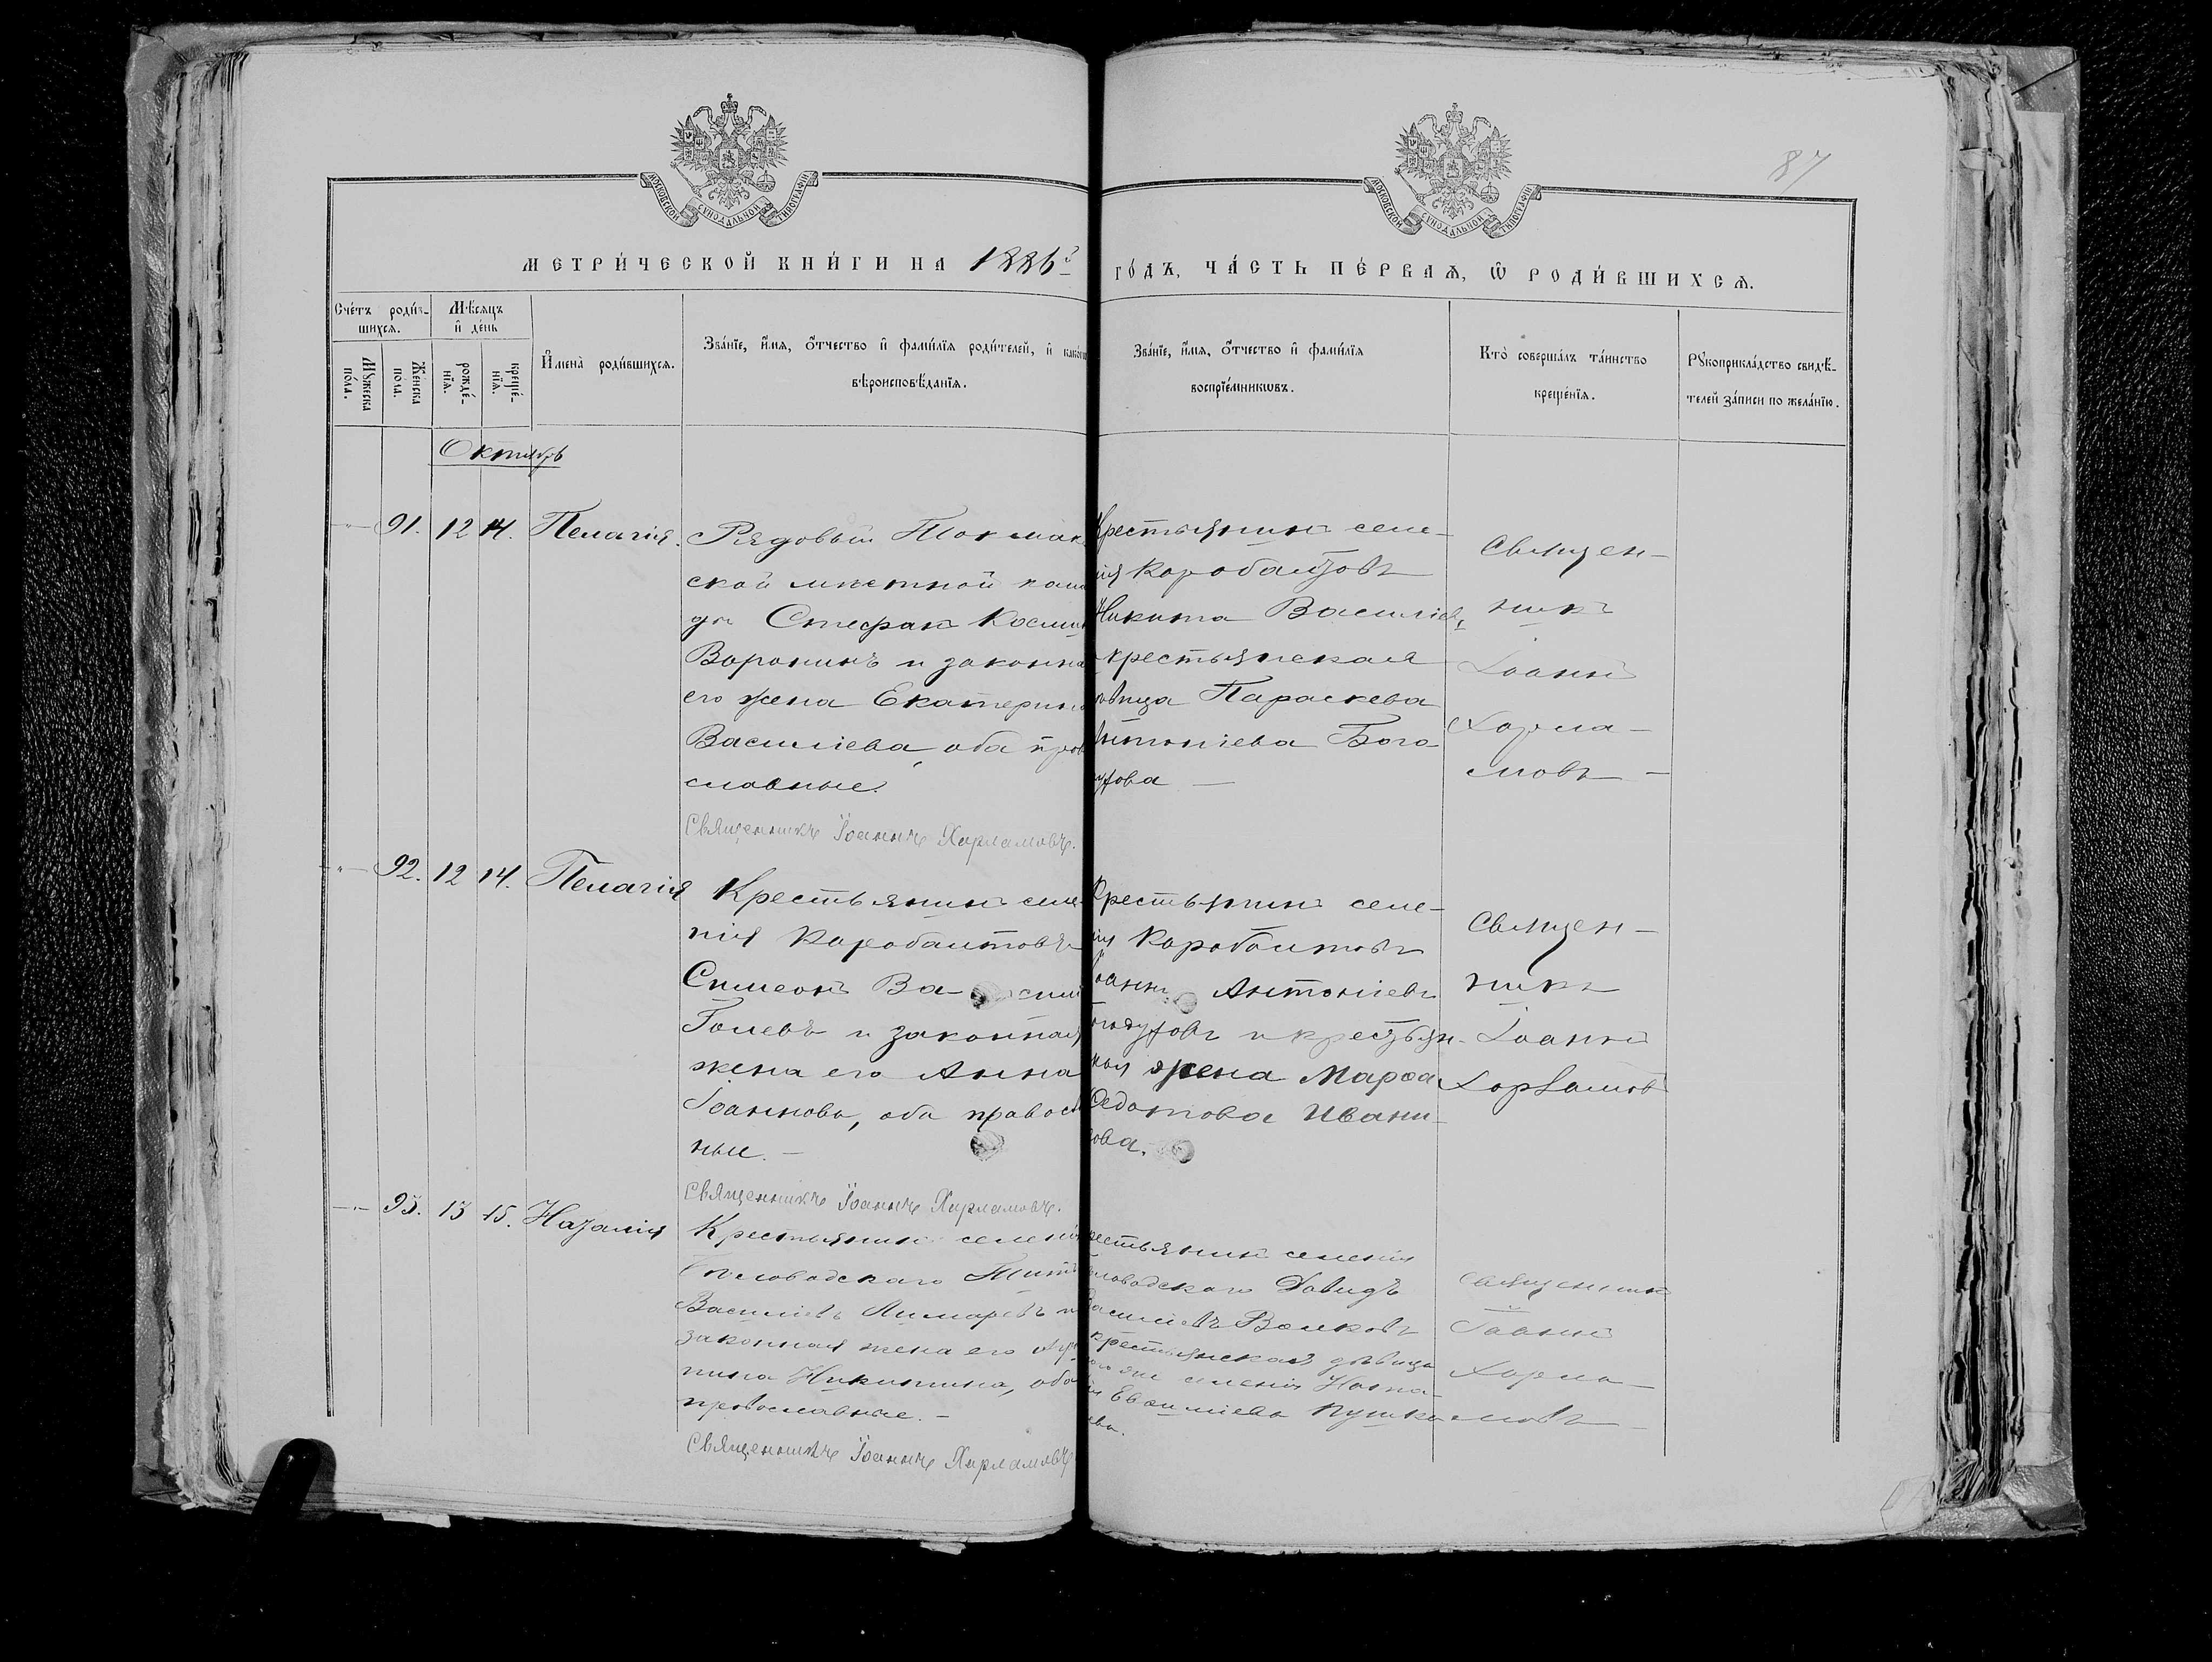 87
МОСКОВСКОЙ СѴНОДАЛЬНОЙ ТИПОГРАФІИ
МОСКОВСКОЙ СѴНОДАЛЬНОЙ ТИПОГРАФІИ
МЕТРИ́ЧЕСКОЙ КНИ́ГИ НА 1886й ГО́ДЪ, ЧА́СТЬ ПЕ́РВАѦ, Ѿ РОДИ́ВШИХСѦ.
Сче́тъ роди́в-
шихсѧ.
Мꙋ́жеска
по́ла.
Же́нска
пола.
Мѣ́сѧцъ
и҆ де́нь
рожде́-
нїѧ.
креще́-
нїѧ.
И҆мена̀ роди́вшихсѧ.
Зва́нїе, и҆́мѧ, ѻ҆́тчество и҆ фами́лїѧ роди́телей, и҆ како́гѡ
вѣроисповѣ́данїѧ.
Зва́нїе, и҆́мѧ, ѻ҆́тчество и҆ фами́лїѧ
воспрїе́мникѡвъ.
Кто̀ соверша́лъ та́инство
креще́нїѧ.
Рꙋкоприкла́дство свидѣ́-
телей за́писи по жела́нїю.
Октябрь
91. 12 14. Пелагія.
Рядовый Токмак
ской мѣстной кома
ды Стефан Косми
Воронинъ и законна
его жена Екатерина
Василіева, оба прав
славные.
Священникъ Іоаннъ Харламовъ.
Крестьянинъ селе-
нія Коробаптовъ
Никита Василіев,
крестьянская
дѣвица Параскева
Антоніева Бого
духова —
Священ-
никъ
Іоаннъ
Харла-
мовъ —
92. 12 14. Пелагія
Крестьянинъ селе-
нія Коробаптовъ
Симеонъ Ва-сил
Голевъ и законная
жена его Анна
Іоаннова, оба правосл
ные. —
Священникъ Іоаннъ Харламовъ.
Крестьянинъ селе-
нія Коробаптовъ
Іоаннъ Антоніевъ
и крестьян-
ская жена Марѳа
Федотова Ивани-
ова.
Священ-
никъ
Іоаннъ
Харламов
93. 13 15. Наталія
Крестьянинъ селенія
Титъ
Василіевъ и
законная жена его
пина Никитина, оба
православные. —
Священникъ Іоаннъ Харламовъ
рестьянинъ селенія
ловодскаго Давидъ
Василіевъ Волковъ
крестьянская дѣвица
того же селенія Ната-
лія Евѳиміева Пушка
ева.
Священник
Іоаннъ
Харла-
мовъ —